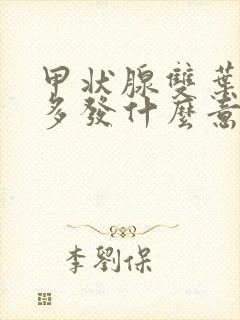 甲状腺雙葉
多發什麼意
李劉保